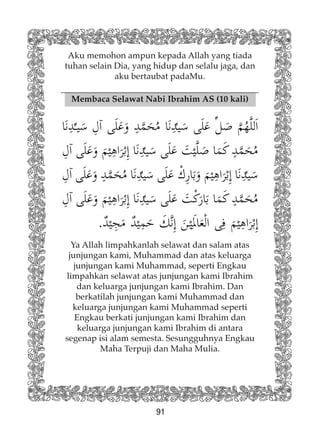 Aku memohon ampun kepada Allah yang tiada
tuhan selain Dia, yang hidup dan selalu jaga, dan
aku bertaubat padaMu.
Membaca Selawat Nabi Ibrahim AS (10 kali)
اَللّٰهُمَّ صَلِّ عَلَى سَيِّدِنَا مُحَمَّدٍ وَعَلَى آلِ سَيِّدِنَا
مُحَمَّدٍ كَمَا صَلَّيْتَ عَلَى سَيِّدِنَا إِبْرَاهِيْمَ وَعَلَى آلِ
سَيِّدِنَا إِبْرَاهِيْمَ وَبَارِكْ عَلَى سَيِّدِنَا مُحَمَّدٍ وَعَلَى آلِ
مُحَمَّدٍ كَمَا بَارَكْتَ عَلَى سَيِّدِنَا إِبْرَاهِيْمَ وَعَلَى آلِ
إِبْرَاهِيْمَ فِى الْعَالَمِيْنَ إِنَّكَ حَمِيْدٌ مَجِيْدٌ.
Ya Allah limpahkanlah selawat dan salam atas
junjungan kami, Muhammad dan atas keluarga
junjungan kami Muhammad, seperti Engkau
limpahkan selawat atas junjungan kami Ibrahim
dan keluarga junjungan kami Ibrahim. Dan
berkatilah junjungan kami Muhammad dan
keluarga junjungan kami Muhammad seperti
Engkau berkati junjungan kami Ibrahim dan
keluarga junjungan kami Ibrahim di antara
segenap isi alam semesta. Sesungguhnya Engkau
Maha Terpuji dan Maha Mulia.
91